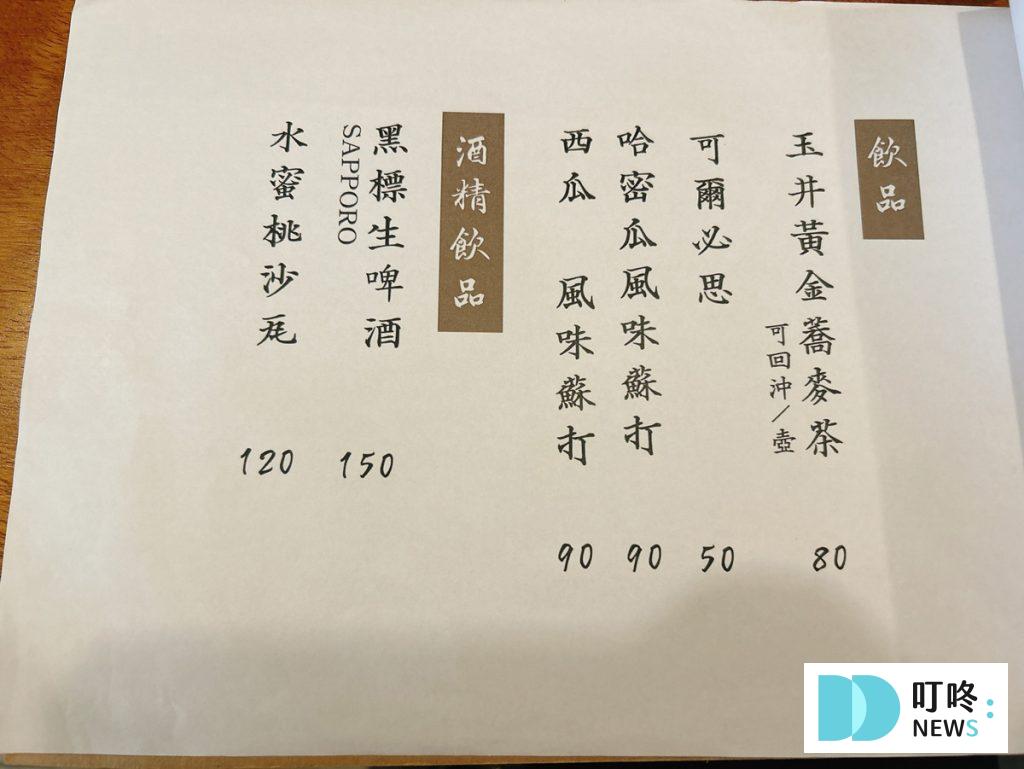 飲品
玉井黃金蕎麥茶 80
可回沖/壺
可爾必思 50
哈密瓜風味蘇打 90
西瓜 風味蘇打 90
酒精飲品
黑標生啤酒 150
SAPPORO
水蜜桃沙瓦 120
叮咚:
NEWS